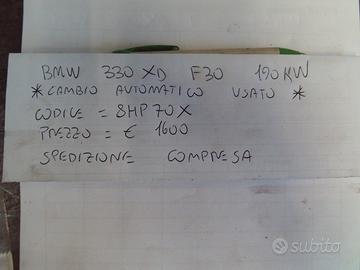 BMW 330 XD F30 190KW
*CAMBIO AUTOMATICO USATO *
CODICE = 8HP70X
PREZZO = € 1600
SPEDIZIONE COMPRESA
subito